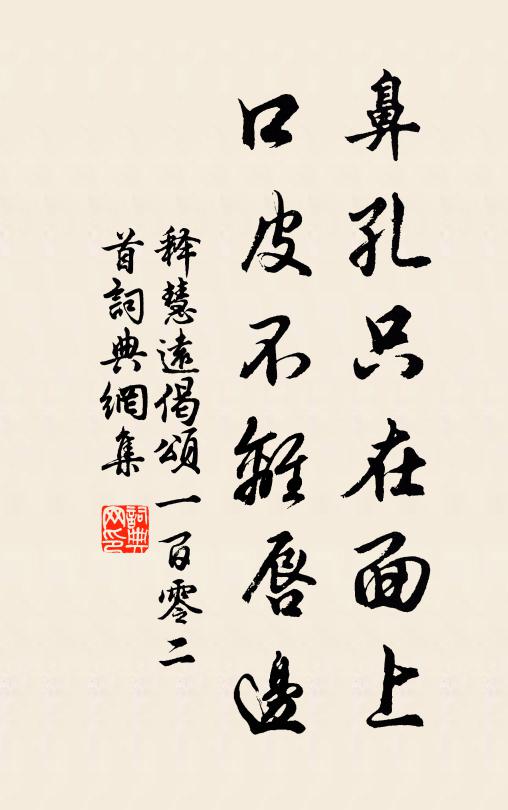 鼻孔只在面上
口皮不離唇邊
释慧遠偈頌一百零二
首詞典網集
詞典网印